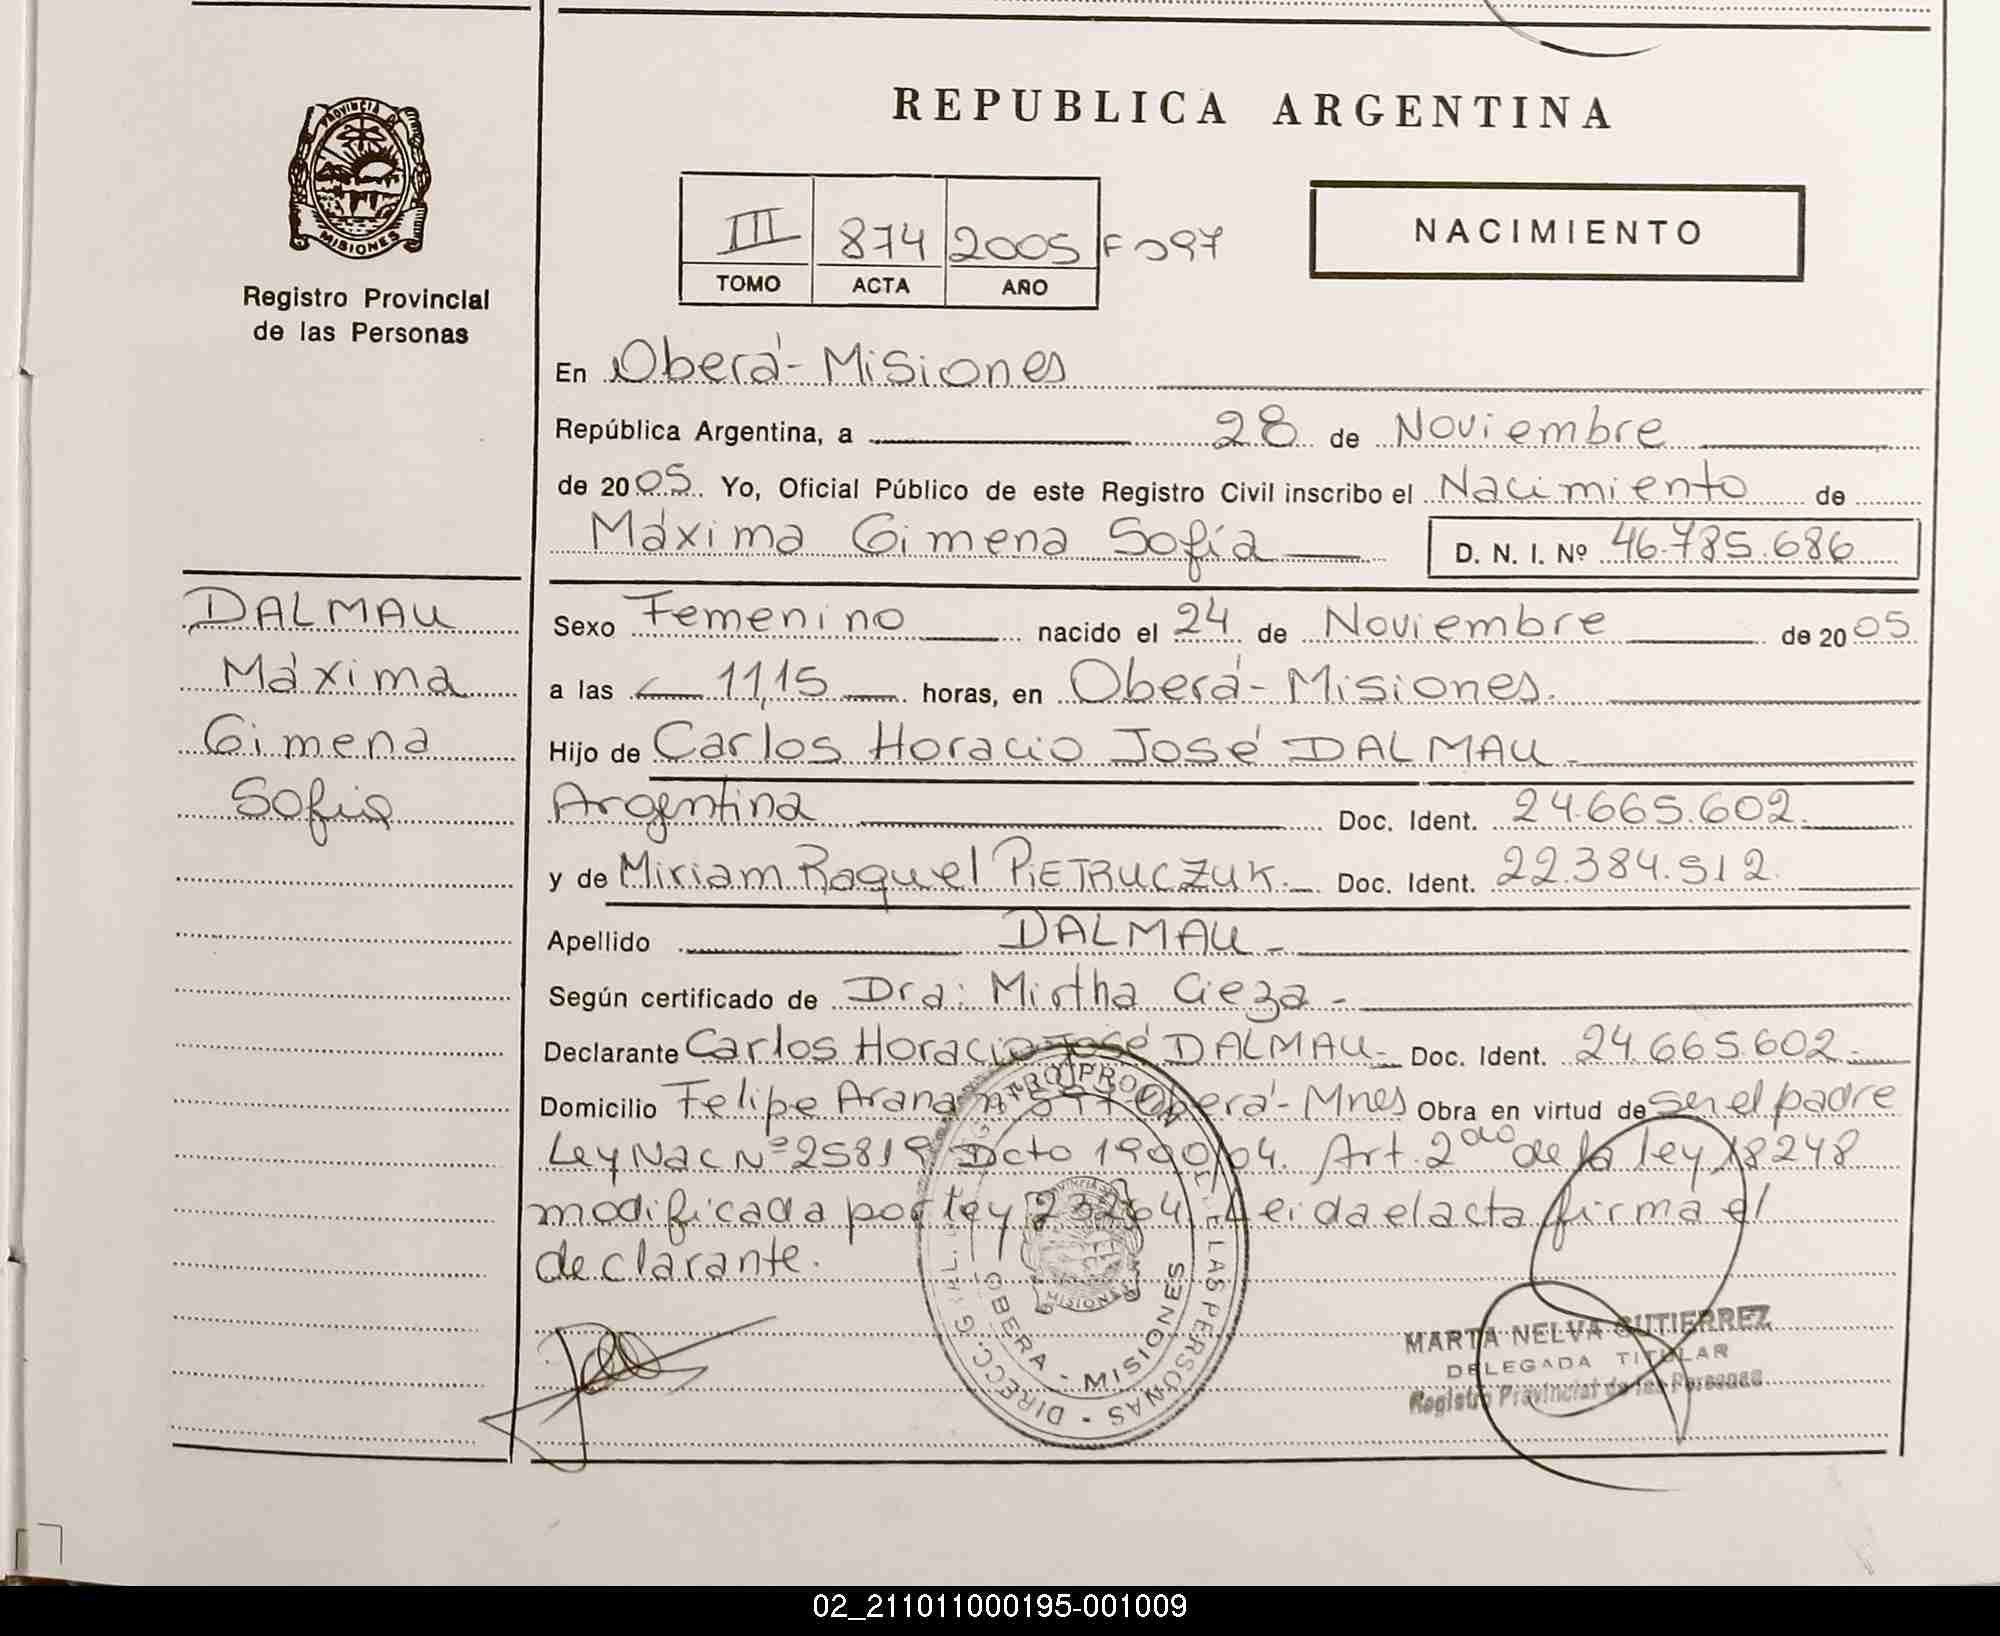 REPUBLICA ARGENTINA
PROVINCIA DE
MISIONES
Registro Provincial
de las Personas
III 874 2005 F 097
TOMO ACTA AÑO
NACIMIENTO
En Oberá - Misiones
República Argentina, a 28 de Noviembre
de 2005. Yo, Oficial Público de este Registro Civil inscribo el Nacimiento de
Máxima Gimena Sofía D. N. I. Nº 46.785.686
DALMAU
Máxima
Gimena
Sofia
Sexo Femenino nacido el 24 de Noviembre de 2005
a las 11,15 horas, en Oberá - Misiones.
Hijo de Carlos Horacio José DALMAU
Argentina Doc. Ident. 24.665.602.
y de Miriam Raquel PIETRUCZUK. Doc. Ident. 22.384.512.
Apellido DALMAU -
Según certificado de Dra: Mirtha Cieza -
Declarante Carlos Horacio José DALMAU - Doc. Ident. 24.665.602 -
Domicilio Felipe Arana nº Oberá - Mnes Obra en virtud de ser el padre
Ley Nac Nº 25819 Dcto 1990/04. Art. 2do de la ley 18248
modificada por ley 23264. Leida el acta firma el
declarante.
OBERA - MISIONES
MISIONES
DE LAS PERSONAS • DIRECC. GRAL.
MARTA NELVA GUTIERREZ
DELEGADA TITULAR
Registro Provincial de las Personas
02_211011000195-001009